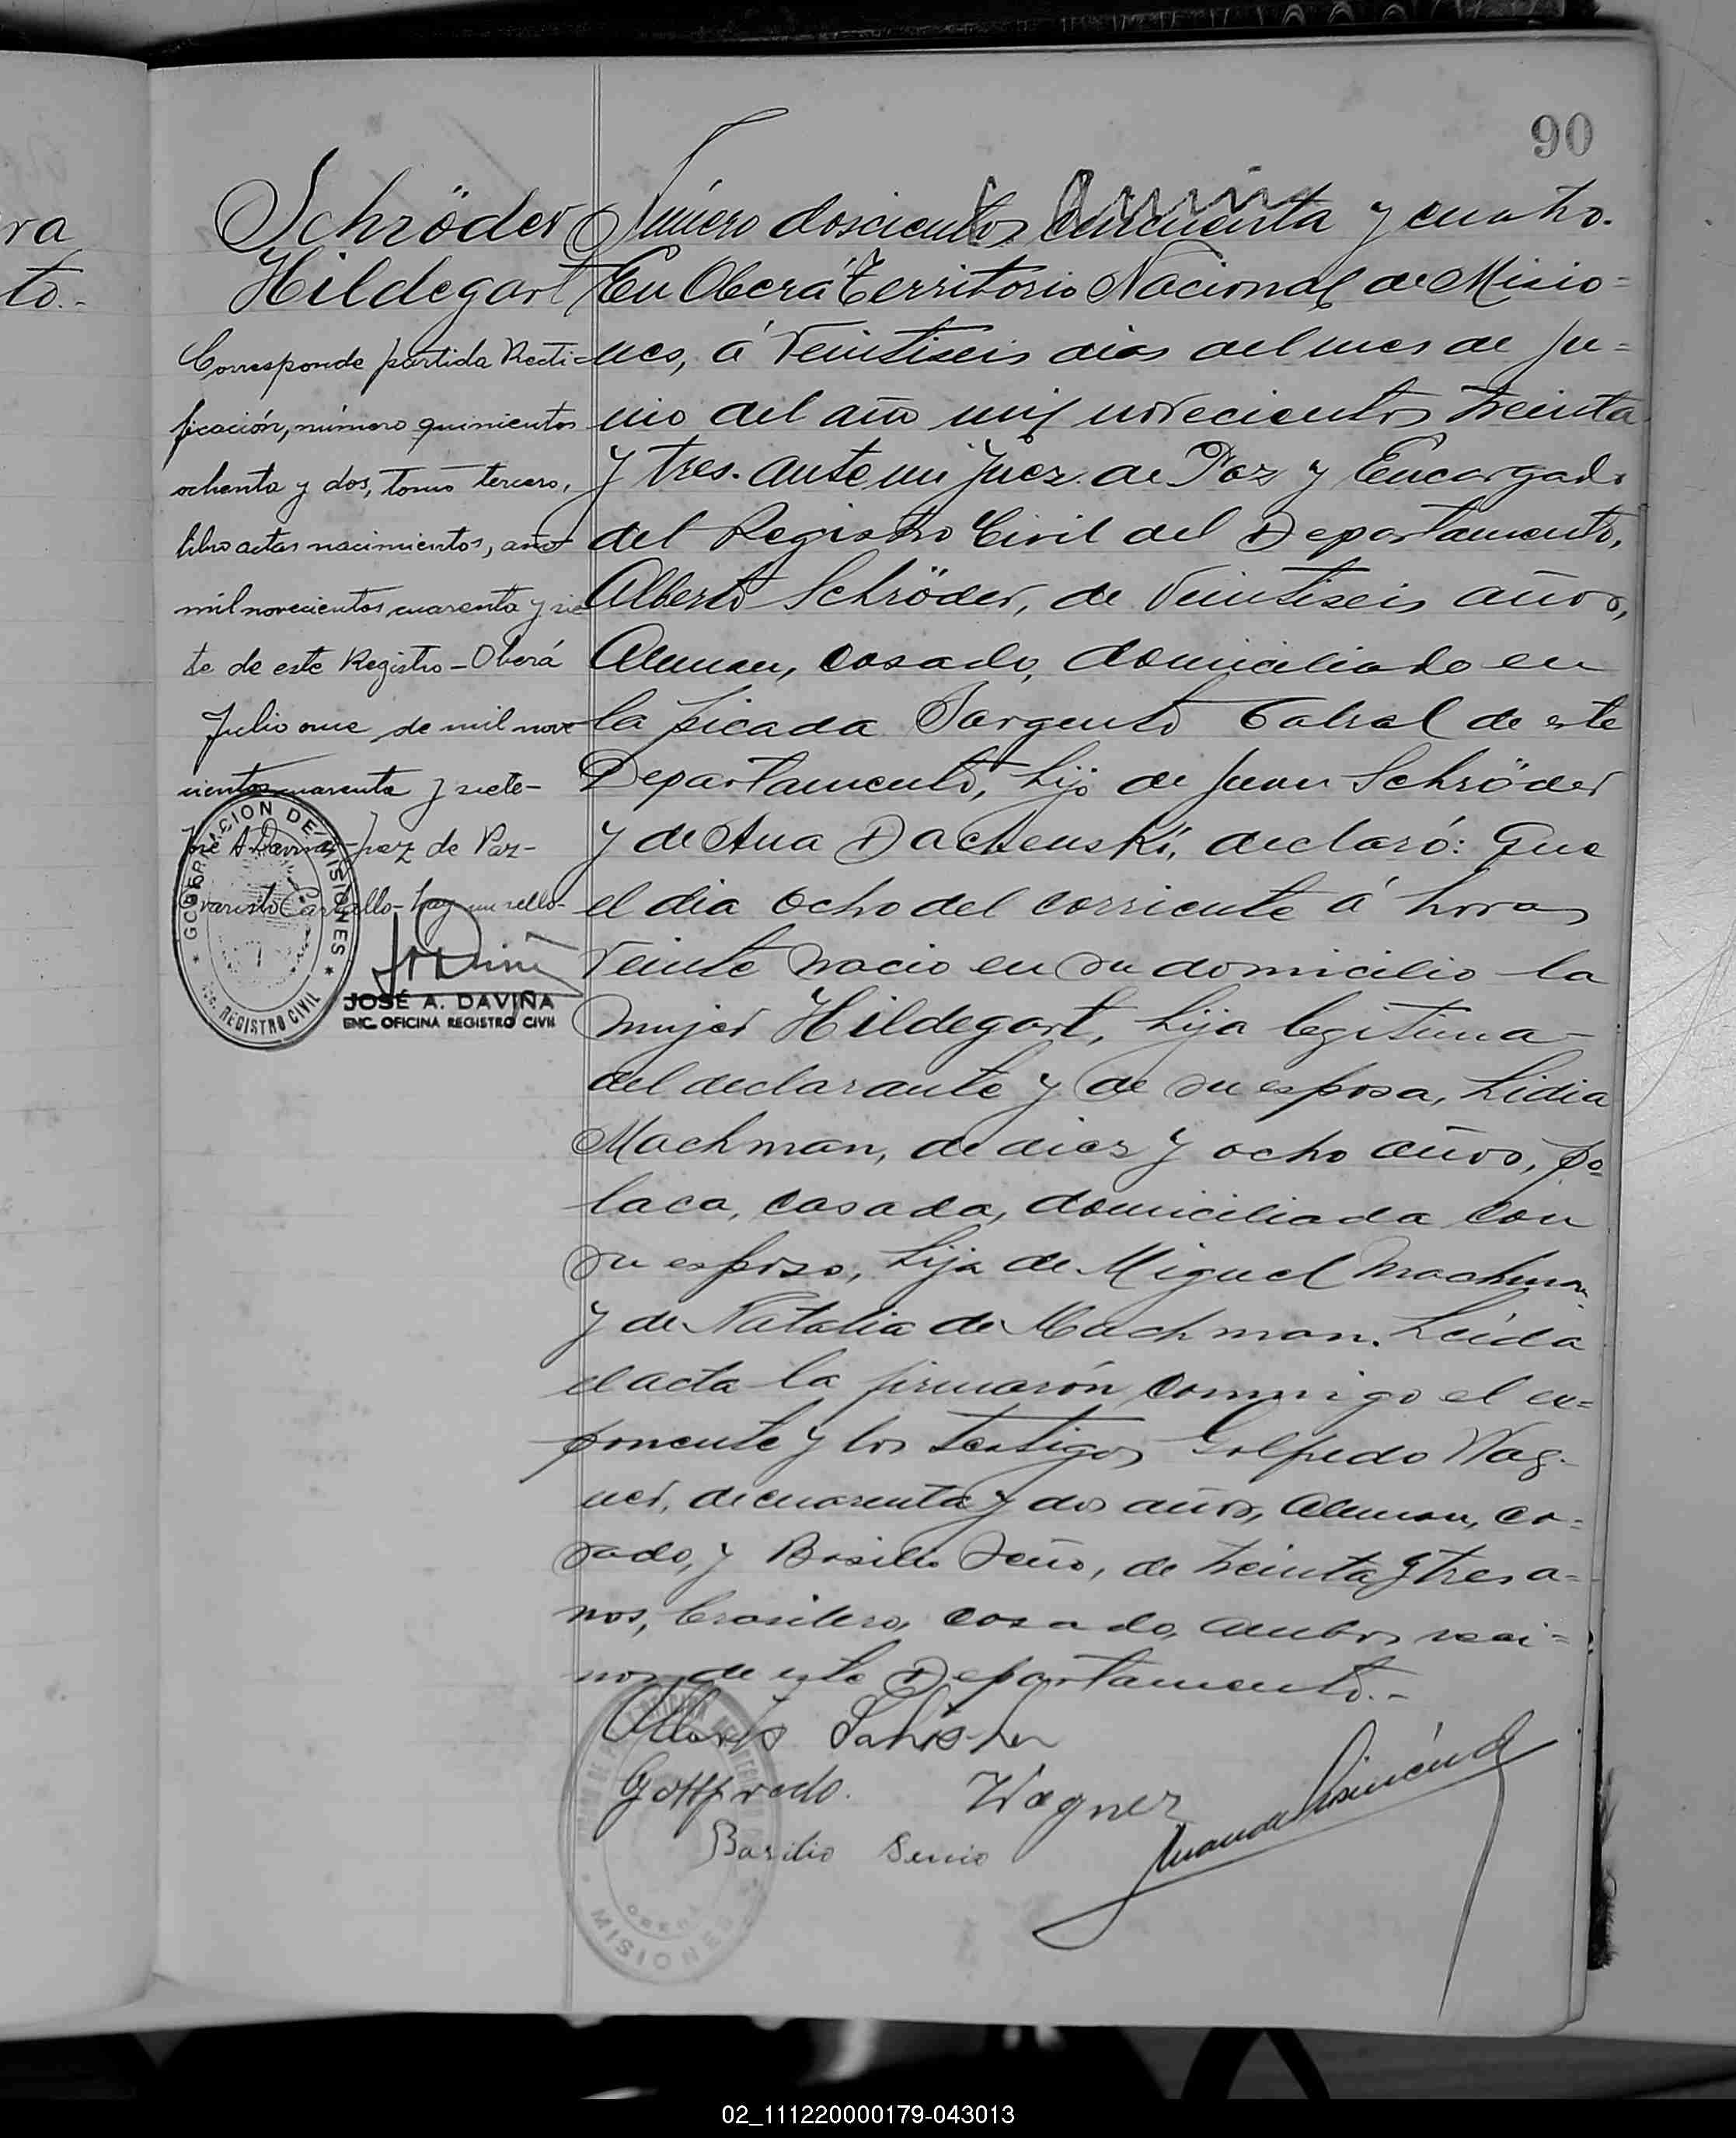 90
ra
to.-
Schröder
Hildegart
Corresponde partida Recti-
ficación, número quinientos
ochenta y dos, tomo tercero,
libro actas nacimientos, año
mil novecientos cuarenta y sie
te de este Registro - Oberá
Julio once de mil nove
cientos cuarenta y siete-
José A Daviña - Juez de Paz-
Evaristo Carvallo - hay un sello-
GOBERNACION DE MISIONES
REGISTRO CIVIL
JOSÉ A. DAVIÑA
ENC. OFICINA REGISTRO CIVIL
Número doscientos cincuenta y cuatro.
En Oberá Territorio Nacional de Misio=
nes, á Veintiseis dias del mes de Ju=
nio del año mil novecientos treinta
y tres. ante mi Juez de Paz y Encargado
del Registro Civil del Departamento,
Alberto Schröder, de Veintiseis años,
Aleman, casado, domiciliado en
la picada Sargento Cabral de este
Departamento, hijo de Juan Schröder
y de Ana Dachenski, declaró: Que
el dia ocho del corriente á horas
Veinte nacio en su domicilio la
mujer Hildegart, hija legitima
del declarante y de su esposa, Lidia
Machman, de diez y ocho años, po
laca, casada, domiciliada con
su esposo, hija de Miguel Machman
y de Natalia de Machman. Leida
el acta la firmarón conmigo el ex=
ponente y los testigos Golfredo Wag-
ner, de cuarenta y dos años, Aleman, ca=
sado, y Basilio Seño, de treinta y tres a=
nos, brasilero, casado, ambos veci=
nos de este Departamento.-
Alberto
Gottfredo. Wagner
Basilio Senio
MISIONES
OBERÁ
02_111220000179-043013